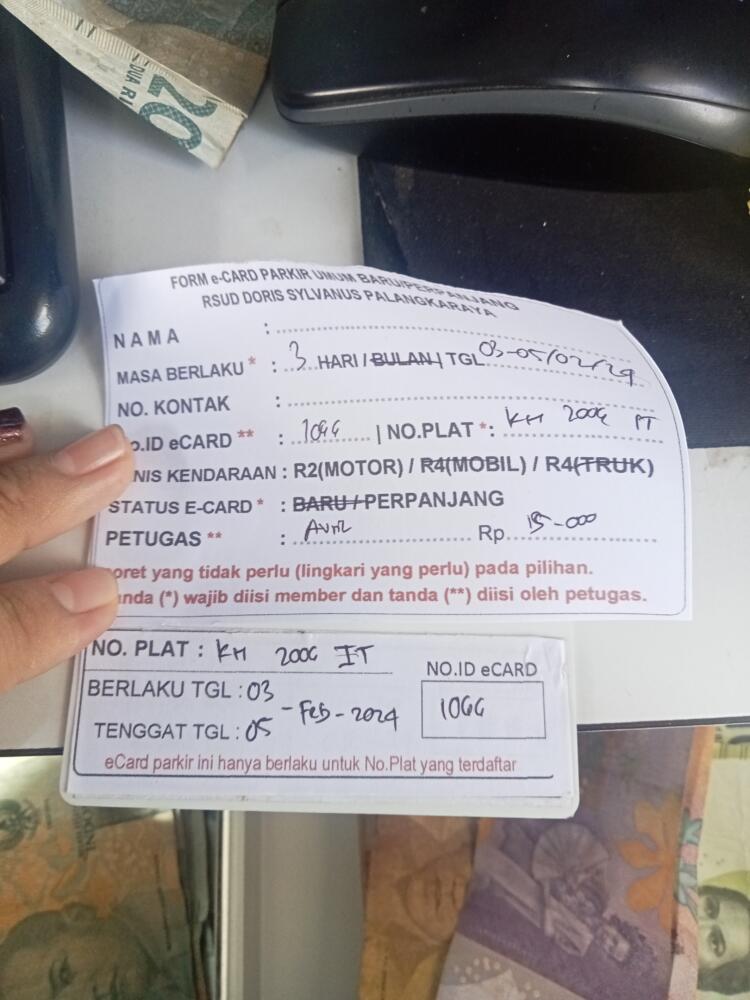 20
DUA R
FORM e-CARD PARKIR UMUM BARU/PERPANJANG
RSUD DORIS SYLVANUS PALANGKARAYA
NAMA :
MASA BERLAKU * : 3 HARI / BULAN / TGL 03-05/02/24
NO. KONTAK :
o.ID eCARD ** : | NO.PLAT *: KH
NIS KENDARAAN : R2(MOTOR) / R4(MOBIL) / R4(TRUK)
STATUS E-CARD * : BARU / PERPANJANG
PETUGAS ** : Avril Rp 15-000
oret yang tidak perlu (lingkari yang perlu) pada pilihan.
anda (*) wajib diisi member dan tanda (**) diisi oleh petugas.
NO. PLAT : KH IT
NO.ID eCARD
BERLAKU TGL : 03
- Feb - 2024
TENGGAT TGL : 05
eCard parkir ini hanya berlaku untuk No.Plat yang terdaftar